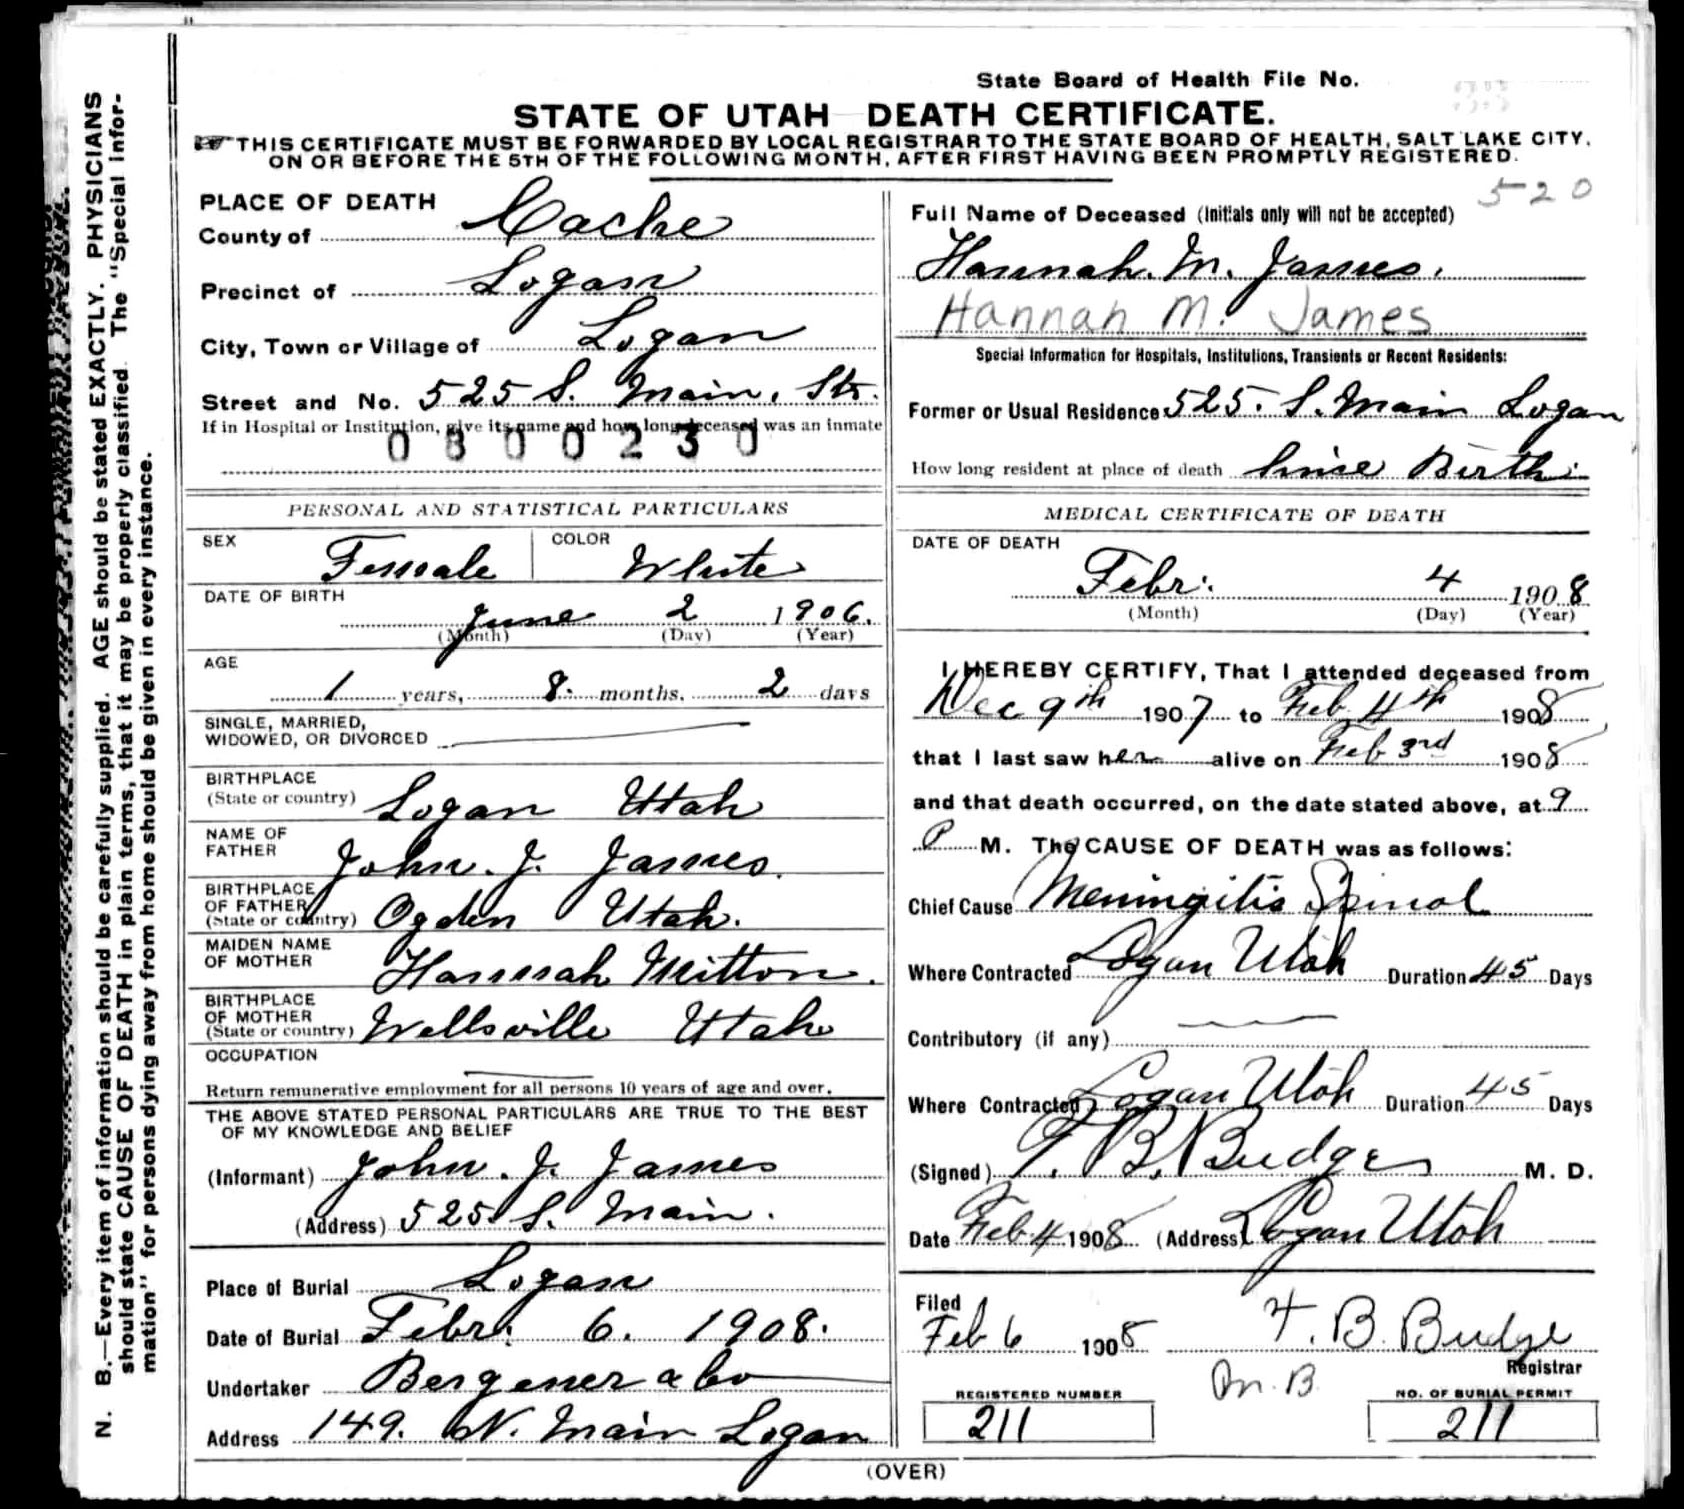 State Board of Health File No.
STATE OF UTAH DEATH CERTIFICATE.
THIS CERTIFICATE MUST BE FORWARDED BY LOCAL REGISTRAR TO THE STATE BOARD OF HEALTH, SALT LAKE CITY,
ON OR BEFORE THE 5TH OF THE FOLLOWING MONTH, AFTER FIRST HAVING BEEN PROMPTLY REGISTERED.
520
PLACE OF DEATH
County of Cache
Precinct of Logan
City, Town or Village of Logan
Street and No. 525 S. Main. Str.
If in Hospital or Institution, give its name and how long deceased was an inmate
0800230
PERSONAL AND STATISTICAL PARTICULARS
SEX Female COLOR White
DATE OF BIRTH
June 2 1906.
(Month) (Day) (Year)
AGE
1 years, 8. months, 2 days
SINGLE, MARRIED,
WIDOWED, OR DIVORCED
BIRTHPLACE
(State or country) Logan Utah
NAME OF
FATHER John. J. James.
BIRTHPLACE
OF FATHER
(State or country) Ogden Utah.
MAIDEN NAME
OF MOTHER Hannah Mitton.
BIRTHPLACE
OF MOTHER
(State or country) Wellsville Utah
OCCUPATION
Return remunerative employment for all persons 10 years of age and over.
THE ABOVE STATED PERSONAL PARTICULARS ARE TRUE TO THE BEST
OF MY KNOWLEDGE AND BELIEF
(Informant) John. J. James
(Address) 525. S. Main.
Place of Burial Logan
Date of Burial Febr. 6. 1908.
Undertaker Bergener & Co
Address 149. N. Main Logan
Full Name of Deceased (Initials only will not be accepted)
Hannah. M. James.
Hannah M. James
Special Information for Hospitals, Institutions, Transients or Recent Residents:
Former or Usual Residence 525. S. Main Logan
How long resident at place of death Since Birth.
MEDICAL CERTIFICATE OF DEATH
DATE OF DEATH
Febr. 4 1908
(Month) (Day) (Year)
I HEREBY CERTIFY, That I attended deceased from
Dec 9th 1907 to Feb 4th 1908
that I last saw her alive on Feb 3rd 1908
and that death occurred, on the date stated above, at 9
P M. The CAUSE OF DEATH was as follows:
Chief Cause Meningitis Spinal
Where Contracted Logan Utah Duration 45 Days
Contributory (if any)
Where Contracted Logan Utah Duration 45 Days
(Signed) T. B. Budge M. D.
Date Feb 4 1908 (Address) Logan Utah
Filed
Feb 6 1908 T. B. Budge
Registrar
M. B.
REGISTERED NUMBER
211
NO. OF BURIAL PERMIT
211
(OVER)
N. B.—Every item of information should be carefully supplied. AGE should be stated EXACTLY. PHYSICIANS
should state CAUSE OF DEATH in plain terms, that it may be properly classified. The "Special Infor-
mation" for persons dying away from home should be given in every instance.